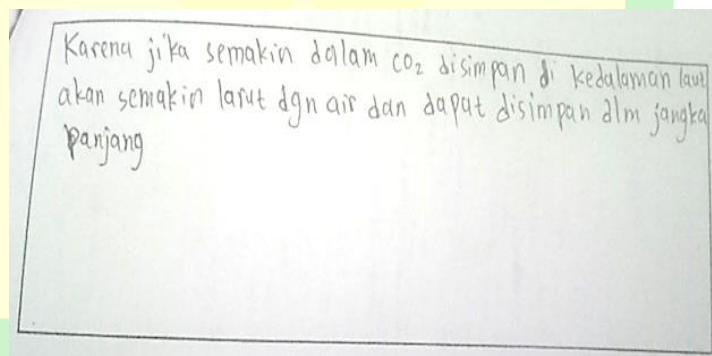 Karena jika semakin dalam CO₂ disimpan di kedalaman laut
akan semakin larut dgn air dan dapat disimpan dlm jangka
panjang